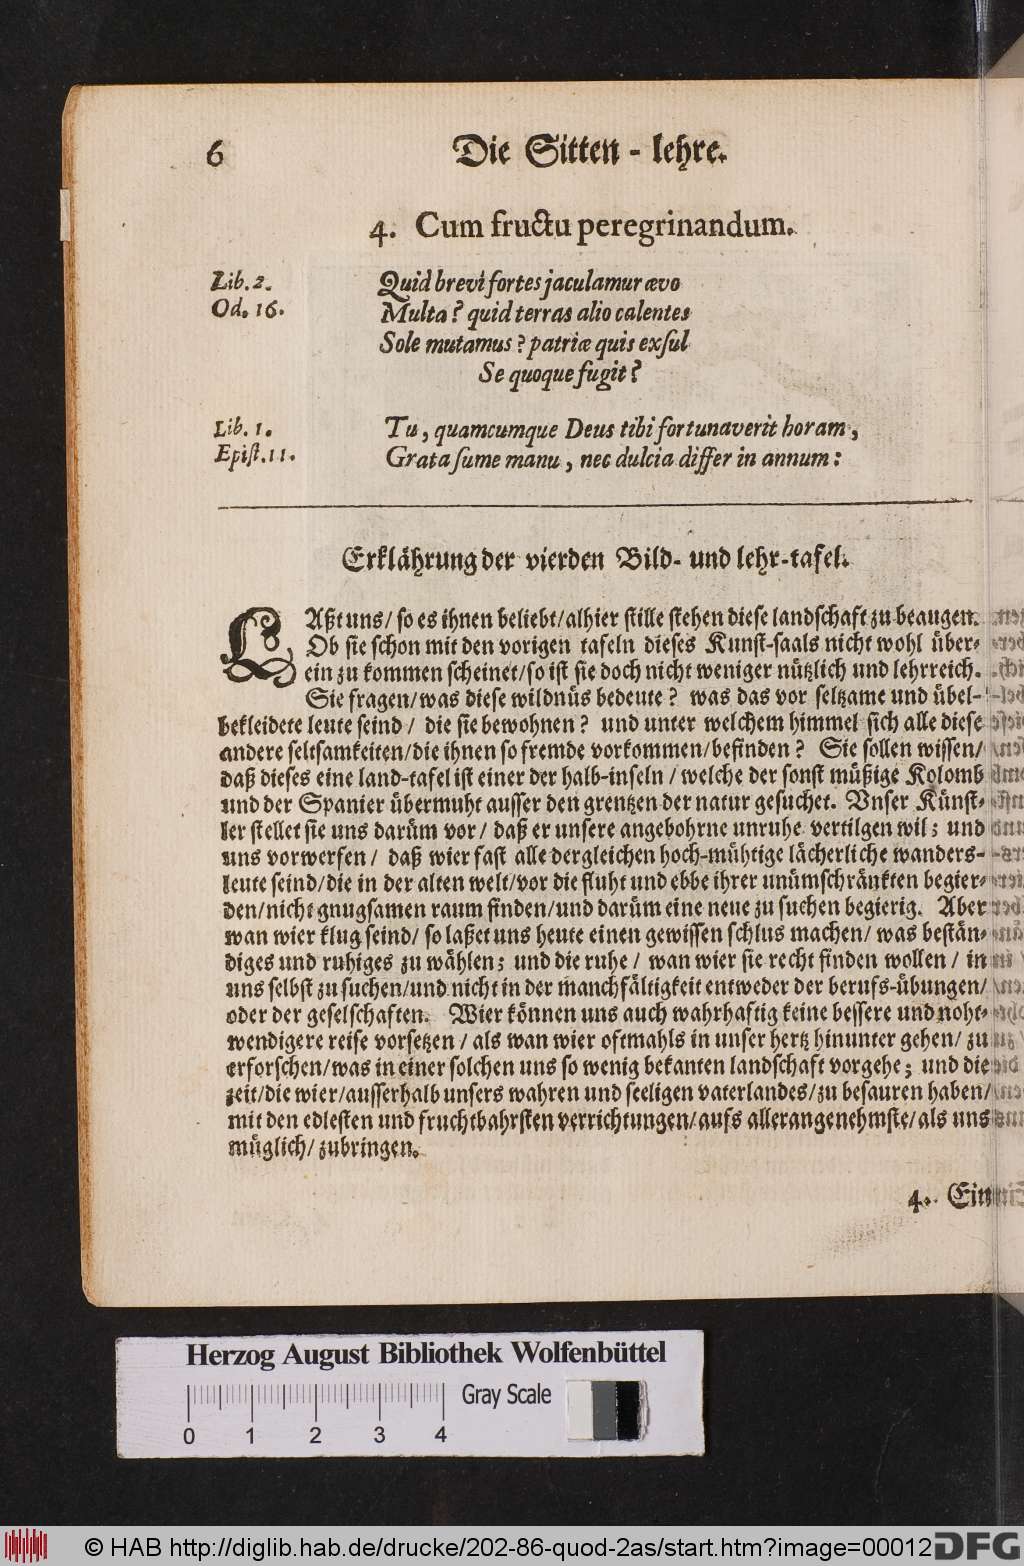 6 Die Sitten - lehre.
4. Cum fructu peregrinandum.
Lib. 2. Quid brevi fortes jaculamur ævo
Od. 16. Multa? quid terras alio calentes
Sole mutamus? patriæ quis exsul
Se quoque fugit?
Lib. 1. Tu, quamcumque Deus tibi fortunaverit horam,
Epist. 11. Grata sume manu, nec dulcia differ in annum:
Erklährung der vierden Bild- und lehr-tafel.
LAßt uns/ so es ihnen beliebt/ alhier stille stehen diese landschaft zu beaugen.
Ob sie schon mit den vorigen tafeln dieses Kunst-saals nicht wohl über-
ein zu kommen scheinet/ so ist sie doch nicht weniger nützlich und lehrreich.
Sie fragen/ was diese wildnüs bedeute? was das vor seltzame und übel-
bekleidete leute seind/ die sie bewohnen? und unter welchem himmel sich alle diese
andere seltsamkeiten/ die ihnen so fremde vorkommen/ befinden? Sie sollen wissen/
daß dieses eine land-tafel ist einer der halb-inseln/ welche der sonst müßige Kolomb
und der Spanier übermuht ausser den grentzen der natur gesuchet. Vnser Künst-
ler stellet sie uns darüm vor/ daß er unsere angebohrne unruhe vertilgen wil; und
uns vorwerfen/ daß wier fast alle dergleichen hoch-mühtige lächerliche wanders-
leute seind/ die in der alten welt/ vor die fluht und ebbe ihrer unümschränkten begier-
den/ nicht gnugsamen raum finden/ und darüm eine neue zu suchen begierig. Aber
wan wier klug seind/ so laßet uns heute einen gewissen schlus machen/ was bestän-
diges und ruhiges zu wählen; und die ruhe/ wan wier sie recht finden wollen/ in
uns selbst zu suchen/ und nicht in der manchfältigkeit entweder der berufs-übungen/
oder der geselschaften. Wier können uns auch wahrhaftig keine bessere und noht-
wendigere reise vorsetzen/ als wan wier oftmahls in unser hertz hinunter gehen/ zu
erforschen/ was in einer solchen uns so wenig bekanten landschaft vorgehe; und die
zeit/ die wier/ ausserhalb unsers wahren und seeligen vaterlandes/ zu besauren haben/
mit den edlesten und fruchtbahrsten verrichtungen/ aufs allerangenehmste/ als uns
müglich/ zubringen.
4. Ein
Herzog August Bibliothek Wolfenbüttel
Gray Scale
0 1 2 3 4
© HAB http://diglib.hab.de/drucke/202-86-quod-2as/start.htm?image=00012 DFG